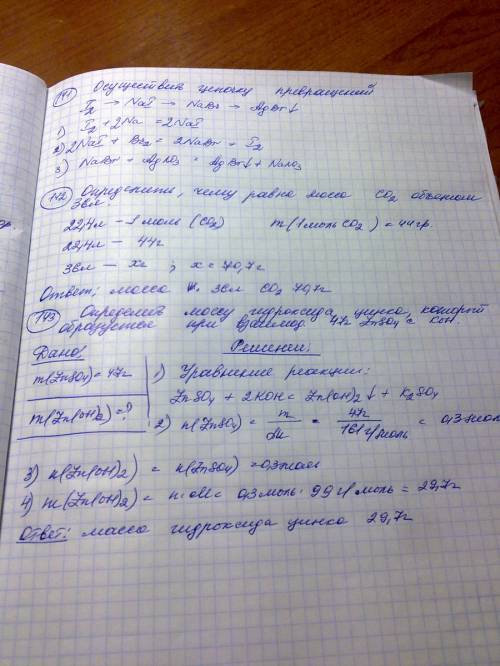 141 Осуществить цепочку превращений
I₂ → NaI → NaBr → AgBr↓
1) I₂ + 2Na = 2NaI
2) 2NaI + Br₂ = 2NaBr + I₂
3) NaBr + AgNO₃ = AgBr↓ + NaNO₃
142 Определить, чему равна масса CO₂ объемом
36л
22,4л – 1 моль (CO₂) m(1 моль CO₂) = 44гр.
22,4л – 44г
36л – xг ; x = 70,7г
Ответ: масса 36л CO₂ 70,7г
143 Определить массу гидроксида цинка, который
образуется при взаимод. 47г ZnSO₄ с KOH.
Дано: Решение:
m(ZnSO₄) = 47г
1) Уравнение реакции:
ZnSO₄ + 2KOH = Zn(OH)₂↓ + K₂SO₄
m(Zn(OH)₂) = ?
2) n(ZnSO₄) = m/M = 47г/161г/моль = 0,3моль
3) n(Zn(OH)₂) = n(ZnSO₄) = 0,3моль
4) m(Zn(OH)₂) = n·M = 0,3моль · 99г/моль = 29,7г
Ответ: масса гидроксида цинка 29,7г